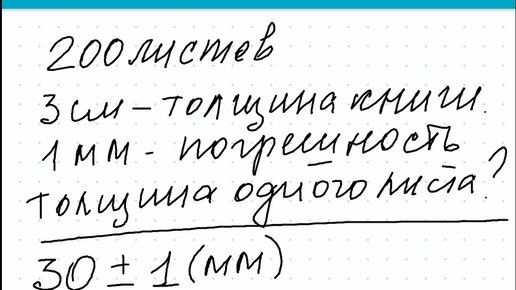 200 листов
3 см - толщина книги.
1 мм - погрешность
толщина одного листа?
30 ± 1 (мм)